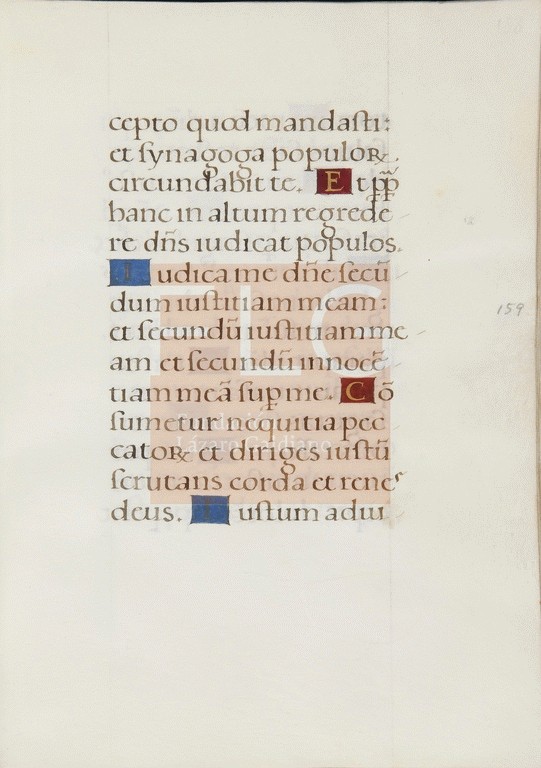 cepto quod mandaſti:
et ſynagoga populoꝝ
circundabit te. E t ꝓp̄
hanc in altum regrede
re dn̄s iudicat populos.
I udica me dn̄e ſecū
dum iuſtitiam meam:
et ſecundū iuſtitiam me
am et ſecundū innocē
tiam meā ſuꝑ me. C ō
ſumetur nequitia pec
catoꝝ et diriges iuſtū
ſcrutans corda et renes
deus. I uſtum adiu
159
FLG
Fundación
Lázaro Galdiano